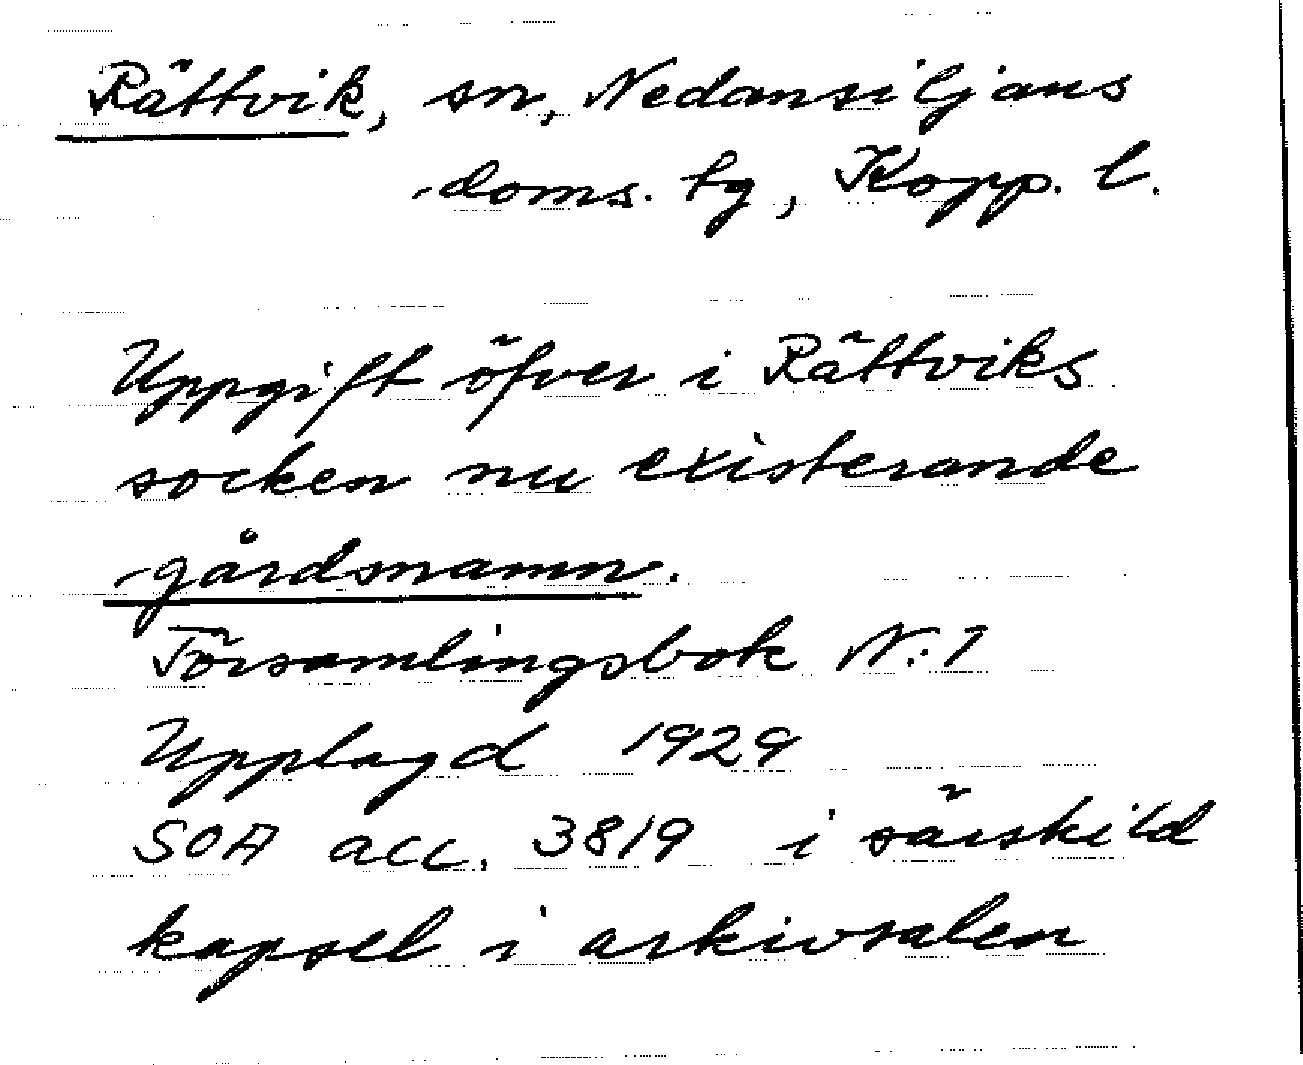 Rättvik, sn, Nedansiljans
doms. tg, Kopp. l.
Uppgift öfver i Rättviks
socken nu existerande
gårdsnamn.
Församlingsbok N:1
Upplagd 1929
SOA acc. 3819 i särskild
kapsel i arkivsalen